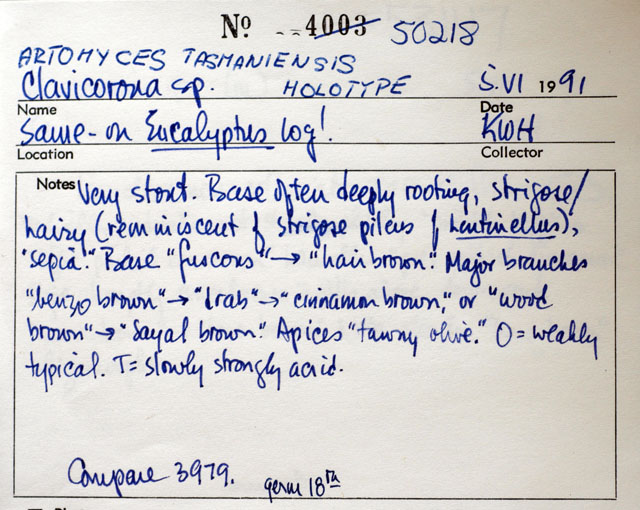 Nº --4003 50218
ARTOMYCES TASMANIENSIS
Clavicorona sp. HOLOTYPE 5.VI 1991
Name Date
Same - on Eucalyptus log! KWH
Location Collector
Notes Very stout. Base often deeply rooting, strigose/
hairy (reminiscent of strigose pileus of Lentinellus),
"sepia." Base "fuscous" → "hair brown." Major branches
"benzo brown" → "drab" → "cinnamon brown," or "wood
brown" → "Sayal brown." Apices "tawny olive." O = weakly
typical. T = slowly strongly acrid.
Compare 3979. germ 18